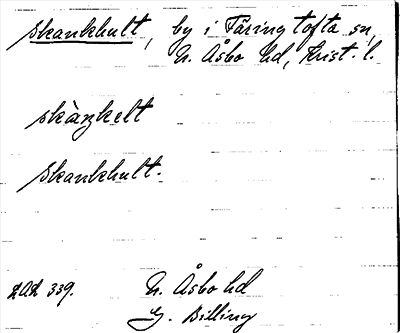 Skankhult, by i Färingtofta sn,
N. Åsbo hd, Krist. l.
skàŋkelt
Skankhult.
N. Åsbo hd
G. Billing